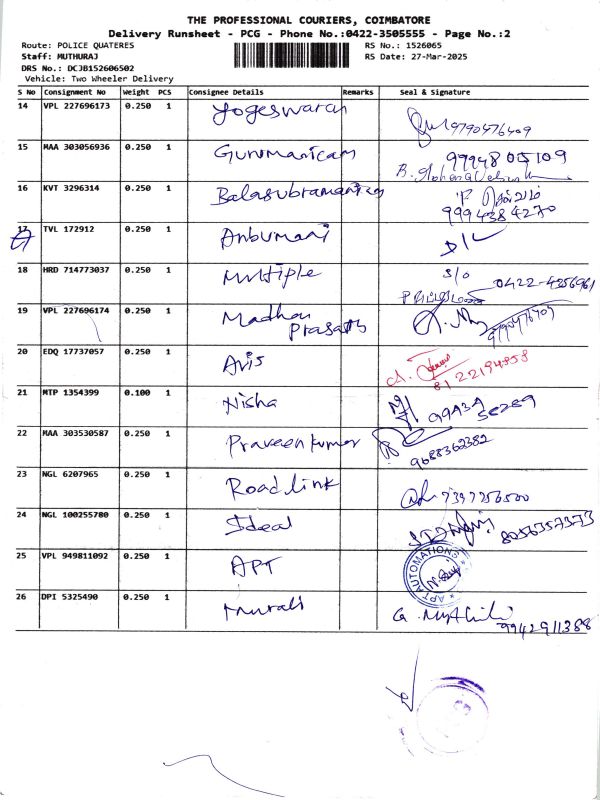 THE PROFESSIONAL COURIERS, COIMBATORE
Delivery Runsheet - PCG - Phone No.:0422-3505555 - Page No.:2
Route: POLICE QUATERES RS No.: 1526065
Staff: MUTHURAJ RS Date: 27-Mar-2025
DRS No.: DCJB152606502
Vehicle: Two Wheeler Delivery
S No Consignment No Weight PCS Consignee Details Remarks Seal & Signature
14 VPL 227696173 0.250 1 Yogeswaran 9790476409
15 MAA 303056936 0.250 1 Gurumanicam 9994805109
16 KVT 3296314 0.250 1 Balasubramaniam
9994384270
17 TVL 172912 0.250 1 Anbumani D/L
18 HRD 714773037 0.250 1 Multiple S/o 0422-4356961
19 VPL 227696174 0.250 1 Madhan
Prasath 9790476409
20 EDQ 17737057 0.250 1 Avis
8122194858
21 MTP 1354399 0.100 1 Nisha 99434 50289
22 MAA 303530587 0.250 1 Praveen kumar
9688362382
23 NGL 6207965 0.250 1 Road link 7397256500
24 NGL 100255780 0.250 1 Ideal 8056357373
25 VPL 949811092 0.250 1 APT APT AUTOMATIONS
26 DPI 5325490 0.250 1 Murali G.
9942911388